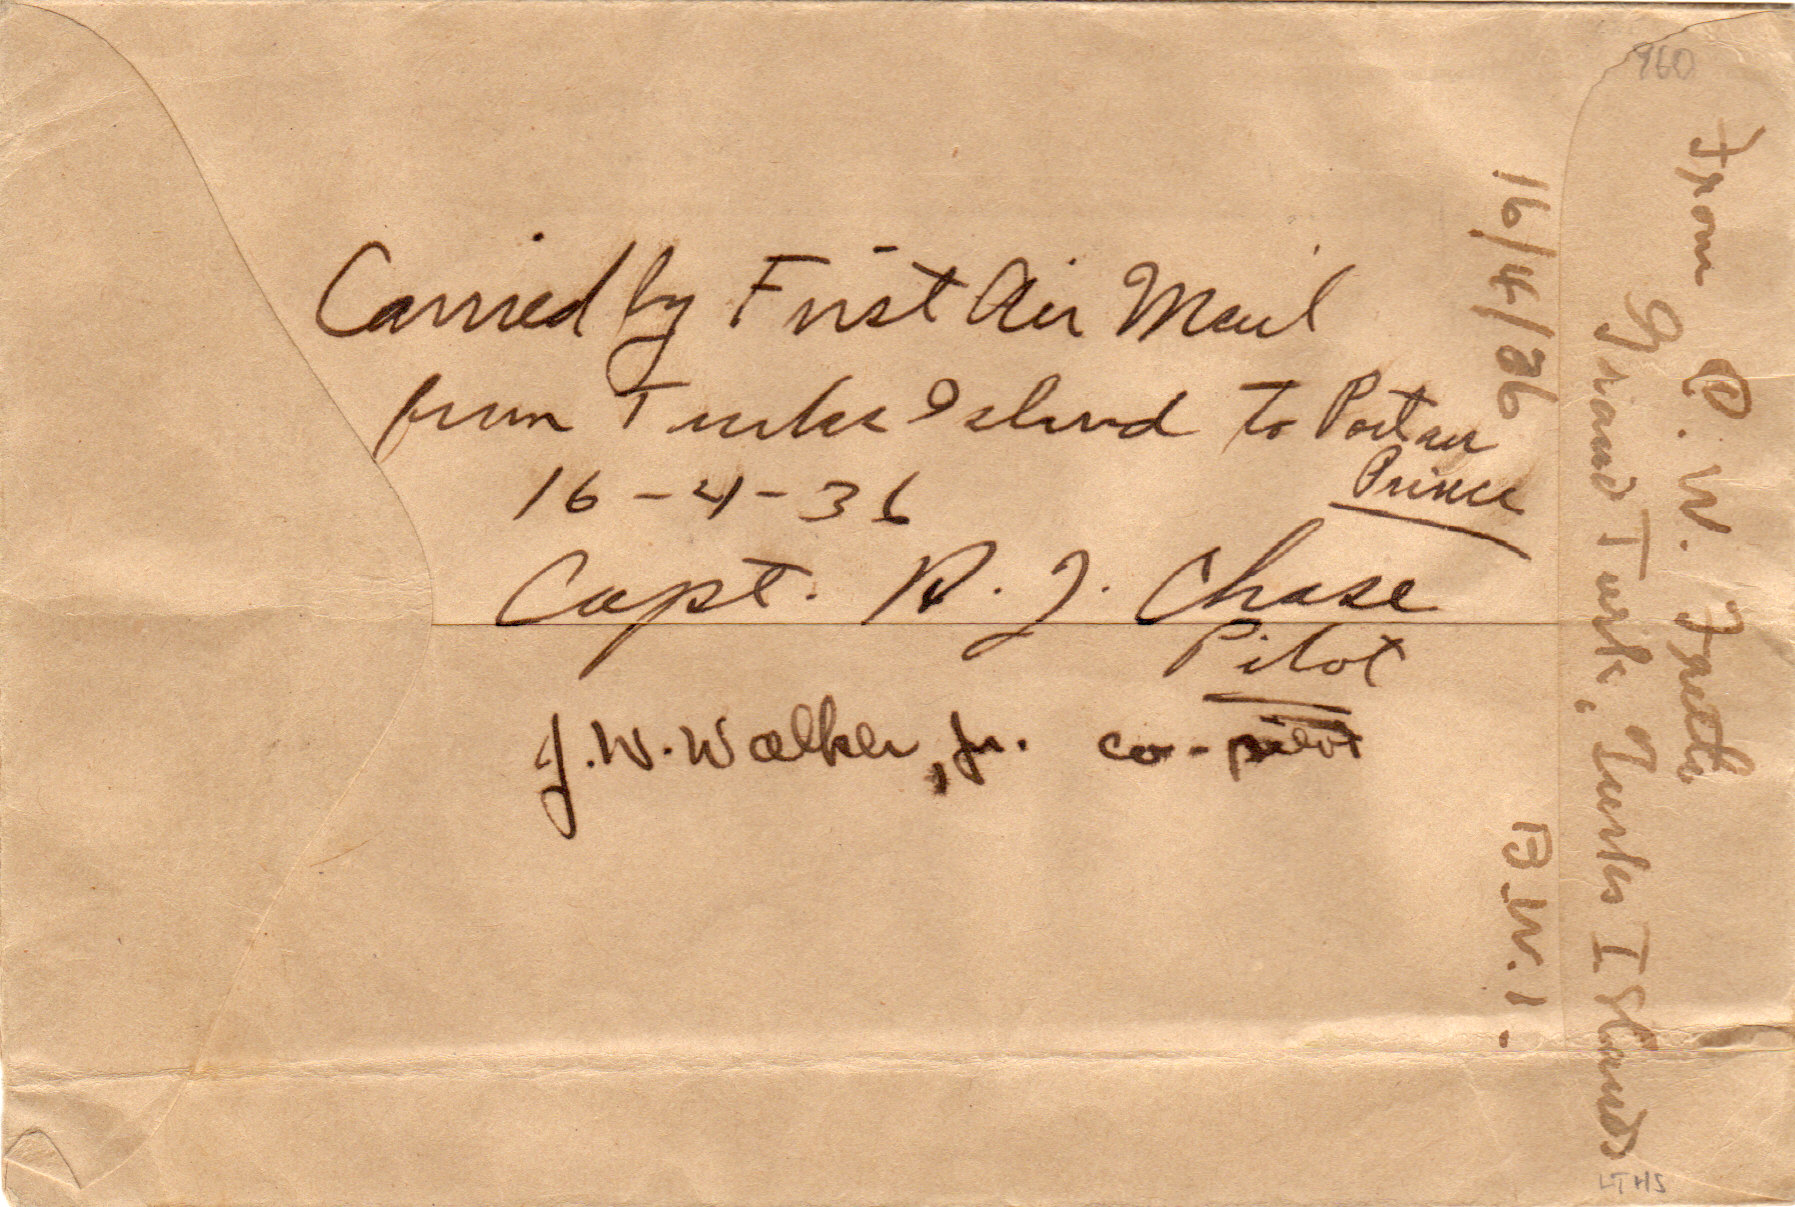 Carried by First Air Mail
from Turks Island to Port au
Prince
16-4-36
Capt. R. J. Chase
Pilot
J. W. Walker, Jr. co-pilot
From C. W. Frith
Grand Turk, Turks Islands
16/4/36 B.W.I.
960